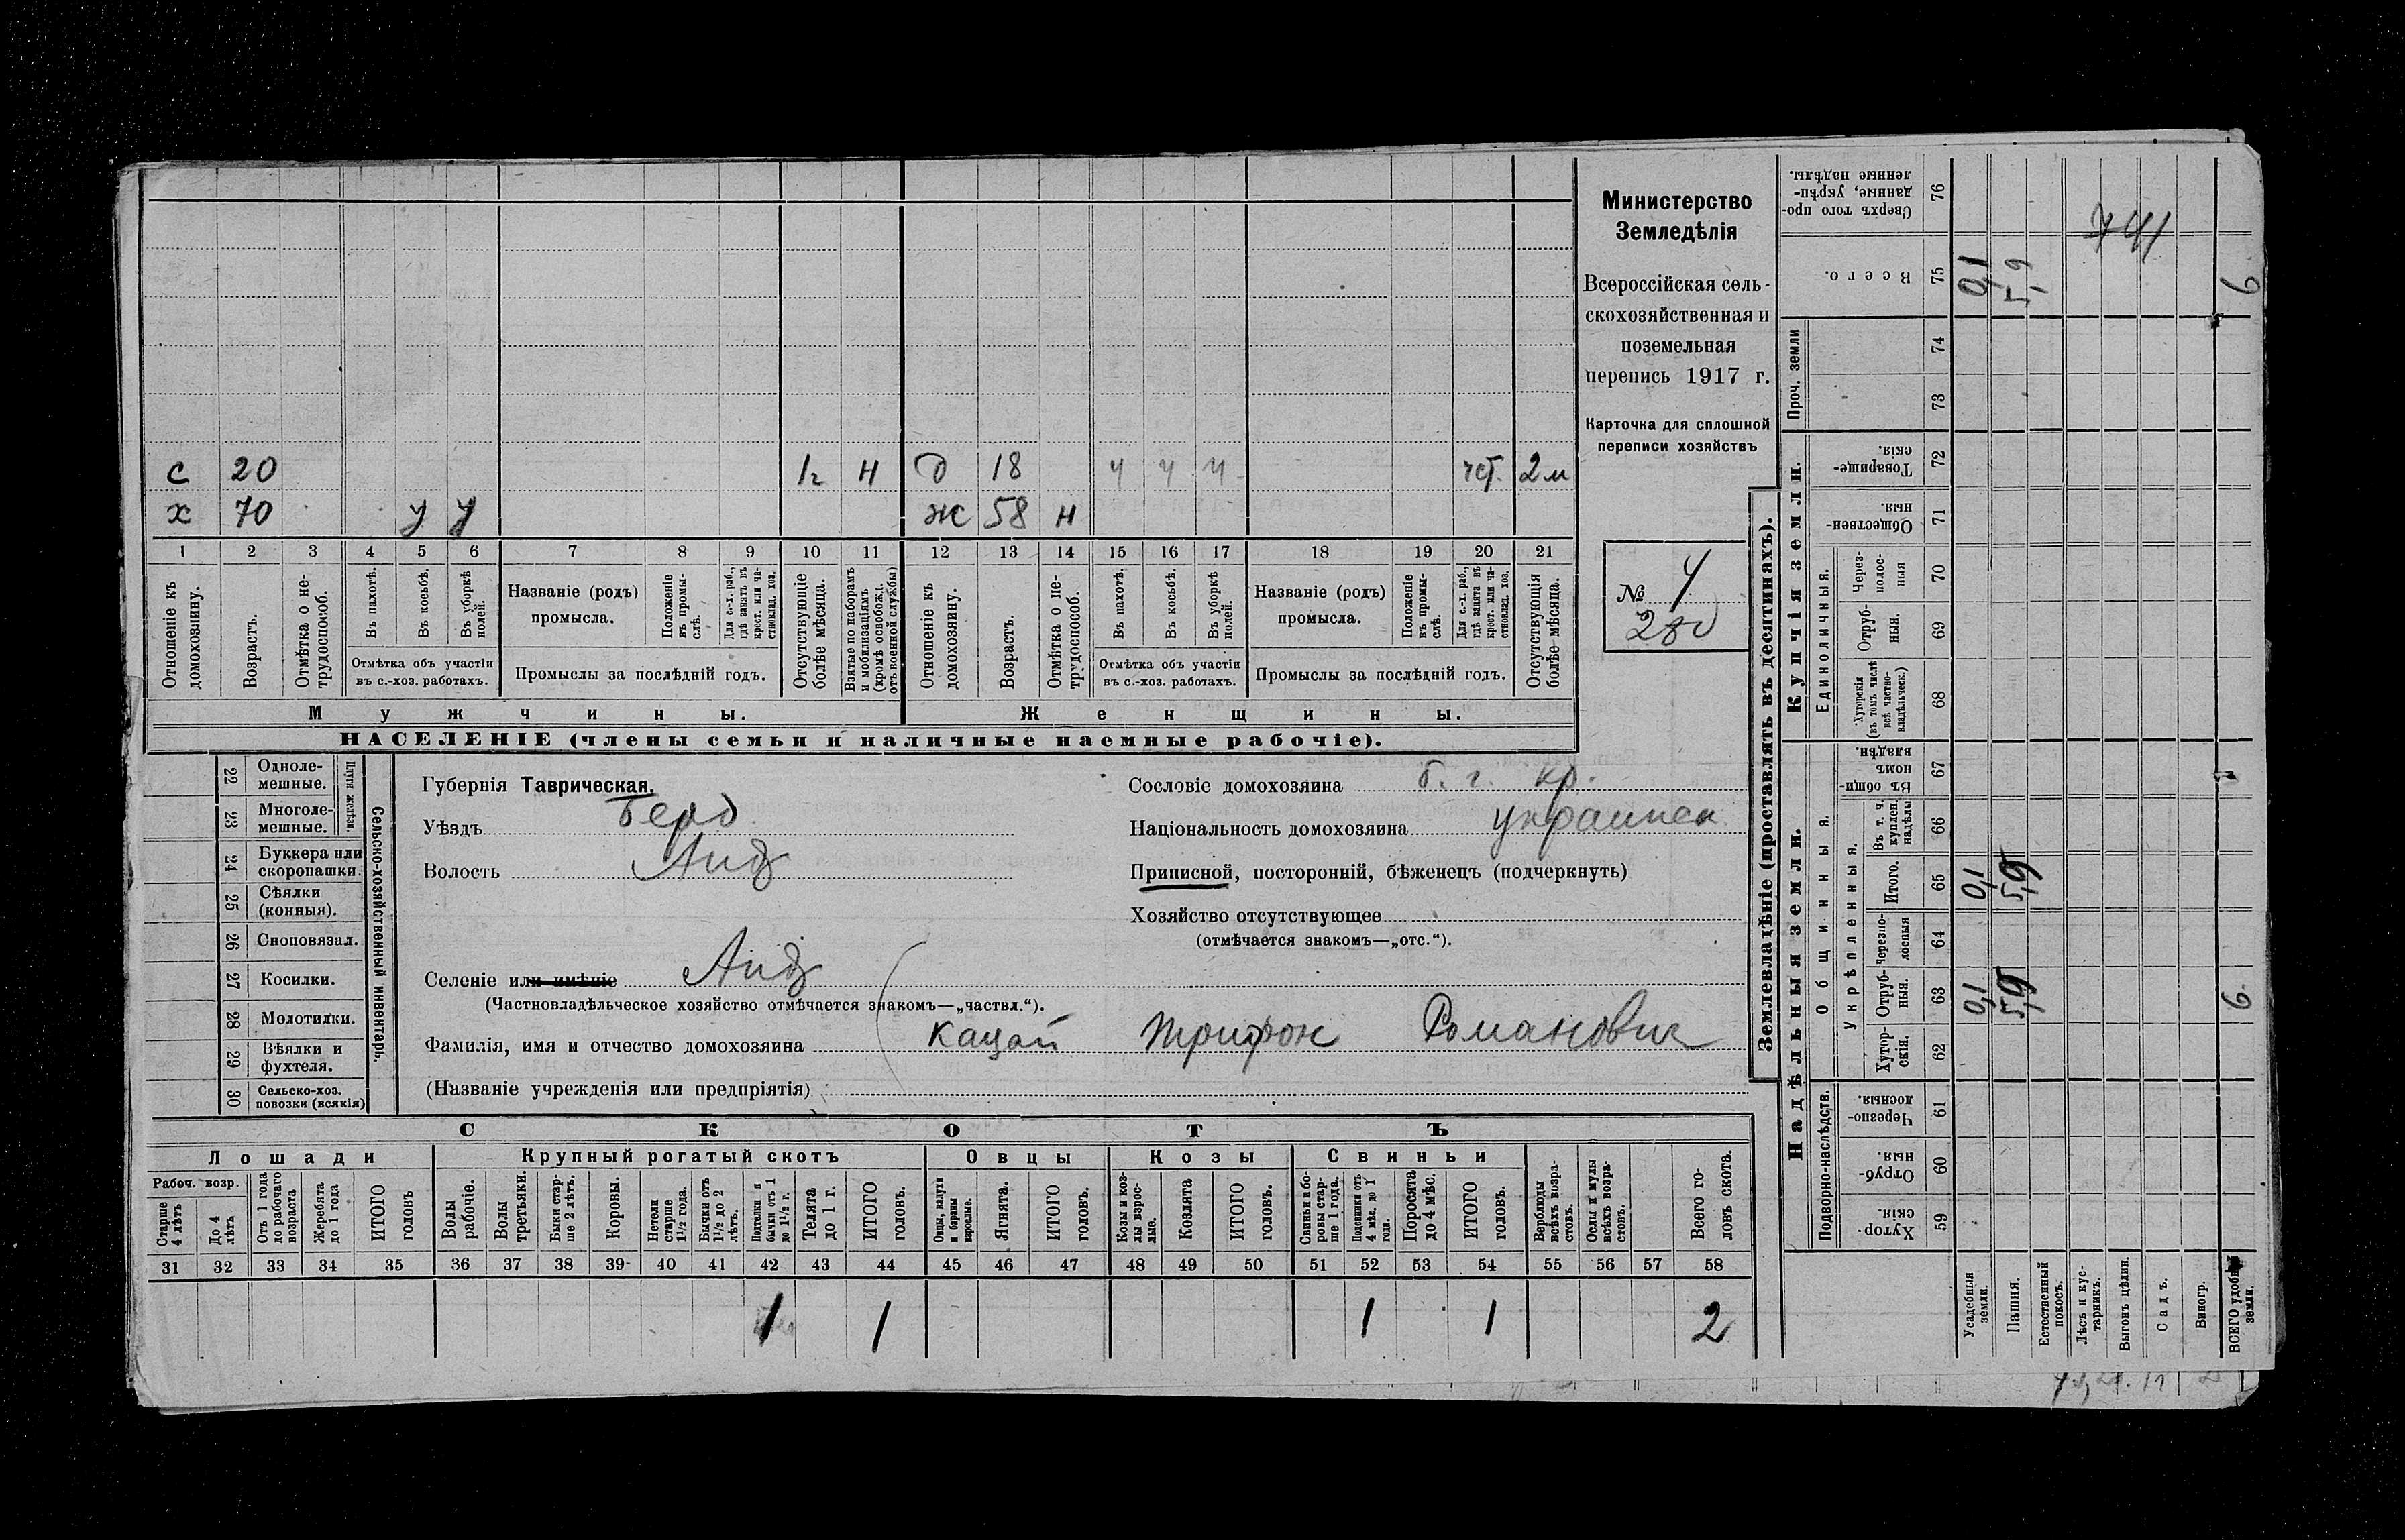 Министерство
Земледѣлія
Всероссійская сель-
скохозяйственная и
поземельная
перепись 1917 г.
Карточка для сплошной
переписи хозяйствъ
№ 4
280
с 20 1г н д 18 ч ч ч чст. 2м
х 70 у у ж 58 н
1 2 3 4 5 6 7 8 9 10 11 12 13 14 15 16 17 18 19 20 21
Отношеніе къ домохозяину.
Возрастъ.
Отмѣтка о не-трудоспособ.
Въ пахотѣ.
Въ косьбѣ.
Въ уборкѣ полей.
Отмѣтка объ участіи
въ с.-хоз. работахъ.
Названіе (родъ)
промысла.
Положеніе въ промы-слѣ.
Для с.-х. раб., гдѣ занятъ въ крест. или ча-стновлад. хоз.
Промыслы за послѣдній годъ.
Отсутствующіе болѣе мѣсяца.
Взятые по наборамъ и мобилизаціямъ (кромѣ освобожд. отъ военной службы)
Отношеніе къ домохозяину.
Возрастъ.
Отмѣтка о не-трудоспособ.
Въ пахотѣ.
Въ косьбѣ.
Въ уборкѣ полей.
Отмѣтка объ участіи
въ с.-хоз. работахъ.
Названіе (родъ)
промысла.
Положеніе въ промы-слѣ.
Для с.-х. раб., гдѣ занята въ крест. или ча-стновлад. хоз.
Промыслы за послѣдній годъ.
Отсутствующія болѣе мѣсяца.
Мужчины. Женщины.
НАСЕЛЕНІЕ (члены семьи и наличные наемные рабочіе).
Сельско-хозяйственный инвентарь.
Плуги желѣзн.
22 Одноле-мешные.
23 Многоле-мешные.
24 Буккера или скоропашки.
25 Сѣялки (конныя).
26 Сноповязал.
27 Косилки.
28 Молотилки.
29 Вѣялки и фухтеля.
30 Сельско-хоз. повозки (всякія)
Губернія Таврическая.
Уѣздъ Берд
Волость Анд
Селеніе или имѣніе Анд
(Частновладѣльческое хозяйство отмѣчается знакомъ—„частвл.“).
Сословіе домохозяина б. г. кр.
Національность домохозяина украинец
Приписной, посторонній, бѣженецъ (подчеркнуть)
Хозяйство отсутствующее
(отмѣчается знакомъ—„отс.“).
Фамилія, имя и отчество домохозяина Кацай Трифон Романович
(Названіе учрежденія или предпріятія)
СКОТЪ
Лошади Крупный рогатый скотъ Овцы Козы Свиньи
Рабоч. возр.
Старше 4 лѣтъ
До 4 лѣтъ
Отъ 1 года до рабочаго возраста
Жеребята до 1 года
ИТОГО головъ
Волы рабочіе.
Волы третьяки.
Быки стар-ше 2 лѣтъ.
Коровы.
Нетели старше 1½ года.
Бычки отъ 1½ до 2 лѣтъ.
Подтелки и бычки отъ 1 до 1½ г.
Телята до 1 г.
ИТОГО головъ.
Овцы, валухи и бараны взрослые.
Ягнята.
ИТОГО головъ.
Козы и коз-лы взрос-лые.
Козлята
ИТОГО головъ.
Свиньи и бо-ровы стар-ше 1 года.
Подсвинки отъ 4 мѣс. до 1 года.
Поросята до 4 мѣс.
ИТОГО головъ.
Верблюды всѣхъ возра-стовъ.
Ослы и мулы всѣхъ возра-стовъ.
Всего го-ловъ скота.
31 32 33 34 35 36 37 38 39 40 41 42 43 44 45 46 47 48 49 50 51 52 53 54 55 56 57 58
1 1 1 1 2
Землевладѣніе (проставлять въ десятинахъ).
Надѣльныя земли. Купчія земли. Проч. земли
Подворно-наслѣдств.
Общинныя.
Укрѣпленныя.
Единоличныя.
Хутор-скія. 59
Отруб-ныя. 60
Черезпо-лосныя. 61
Хутор-скія. 62
Отруб-ныя. 63 0,1 5,9 6
Черезпо-лосныя 64
Итого. 65 0,1 5,9
Въ т. ч. куплен. надѣлы 66
Въ общин-номъ владѣн. 67
Хуторскія (въ томъ числѣ всѣ частно-владѣльческ.) 68
Отруб-ныя. 69
Через-полос-ныя 70
Обществен-ныя. 71
Товарище-скія. 72
73
74
Всего. 75 0,1 5,9 6
Сверхъ того про-данные, укрѣп-ленные надѣлы. 76
741
Усадебныя земли.
Пашня.
Естественный покосъ.
Лѣсъ и кус-тарникъ.
Выгонъ цѣлин.
Садъ.
Виногр.
ВСЕГО удобн. земли.